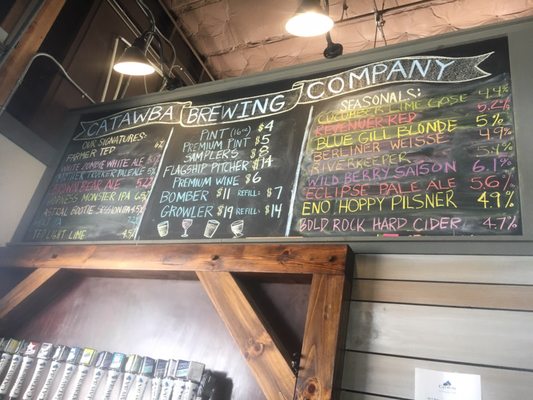 CATAWBA BREWING COMPANY
OUR SIGNATURES:
FARMER TED
WHITE ZOMBIE WHITE ALE
BROWN BEAR ALE
HOPNESS MONSTER IPA
ASTRAL BOOTIE SESSION IPA
TED LIGHT LEME
PINT (16oz) $4
PREMIUM PINT $5
SAMPLERS $8
FLAGSHIP PITCHER $14
PREMIUM WINE $6
BOMBER $11 REFILL: $7
GROWLER $19 REFILL: $14
SEASONALS:
CUCUMBER LIME GOSE 4.4%
REVENUER RED 5.2%
BLUE GILL BLONDE 5%
BERLINER WEISSE 4.9%
RIVERKEEPER
WILD BERRY SAISON 6.1%
ECLIPSE PALE ALE 5.6%
ENO HOPPY PILSNER 4.9%
BOLD ROCK HARD CIDER 4.7%